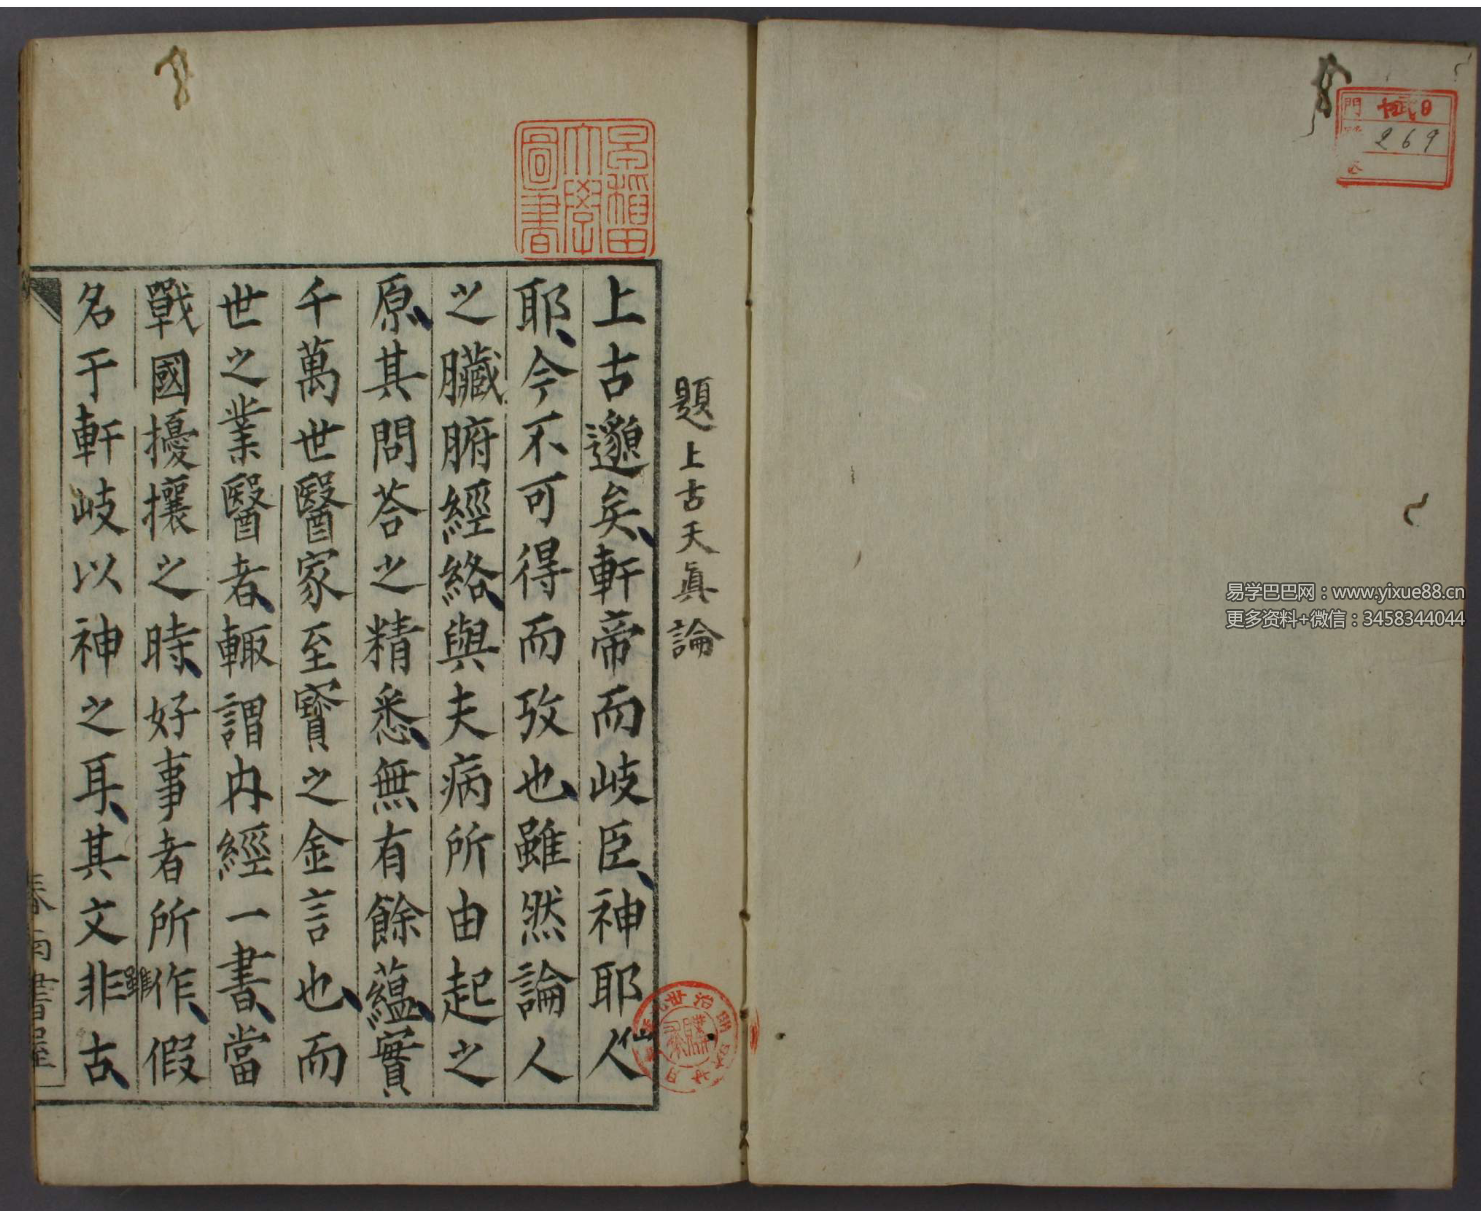 門
269
易学巴巴网：www.yixue88.cn
更多资料+微信：3458344044
早稻田
大學
圖書
題上古天眞論
上古邈矣軒帝而岐臣神耶人
仙
耶今不可得而攷也雖然論人
之臟腑經絡與夫病所由起之
原其問荅之精悉無有餘蘊實
千萬世醫家至寶之金言也而
世之業醫者輒謂内經一書當
戰國擾攘之時好事者所作假
雖
名于軒岐以神之耳其文非古
春雨書屋